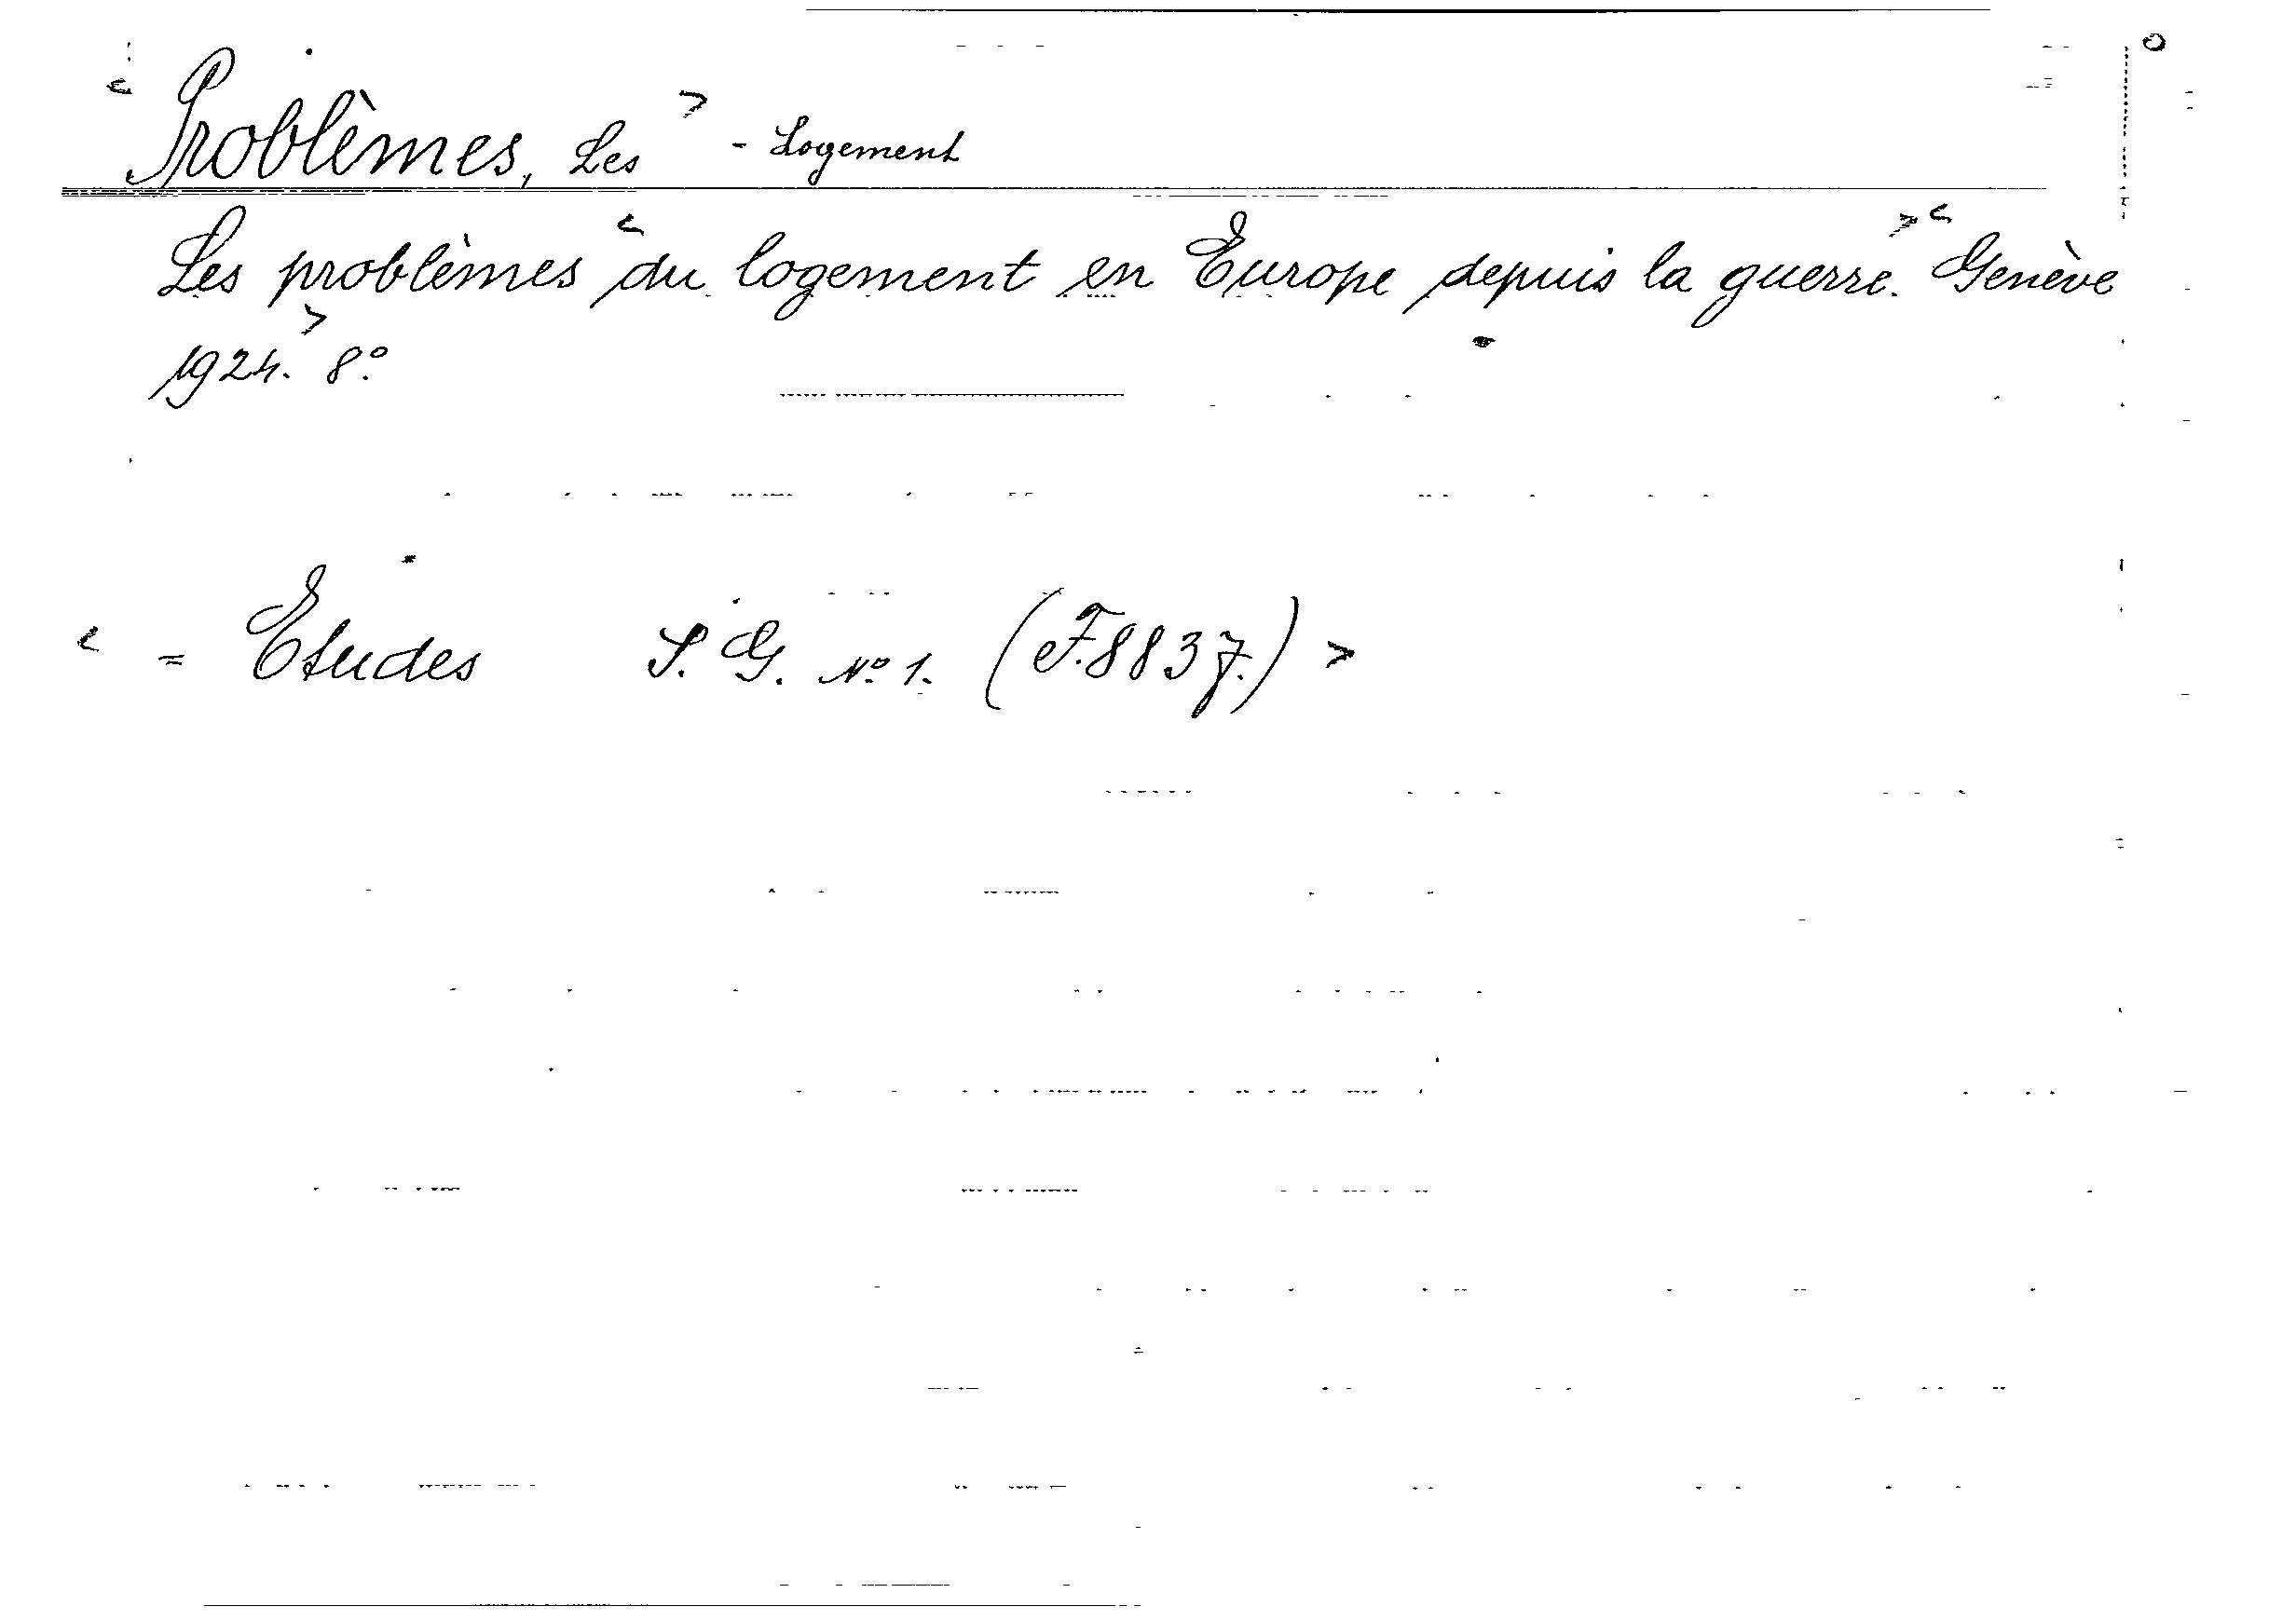 < Problèmes, Les > - Logement
Les problèmes < du logement en Europe depuis la guerre. > < Genève
1924. > 8°.
< = Etudes S. G. № 1. (F.8837.) >